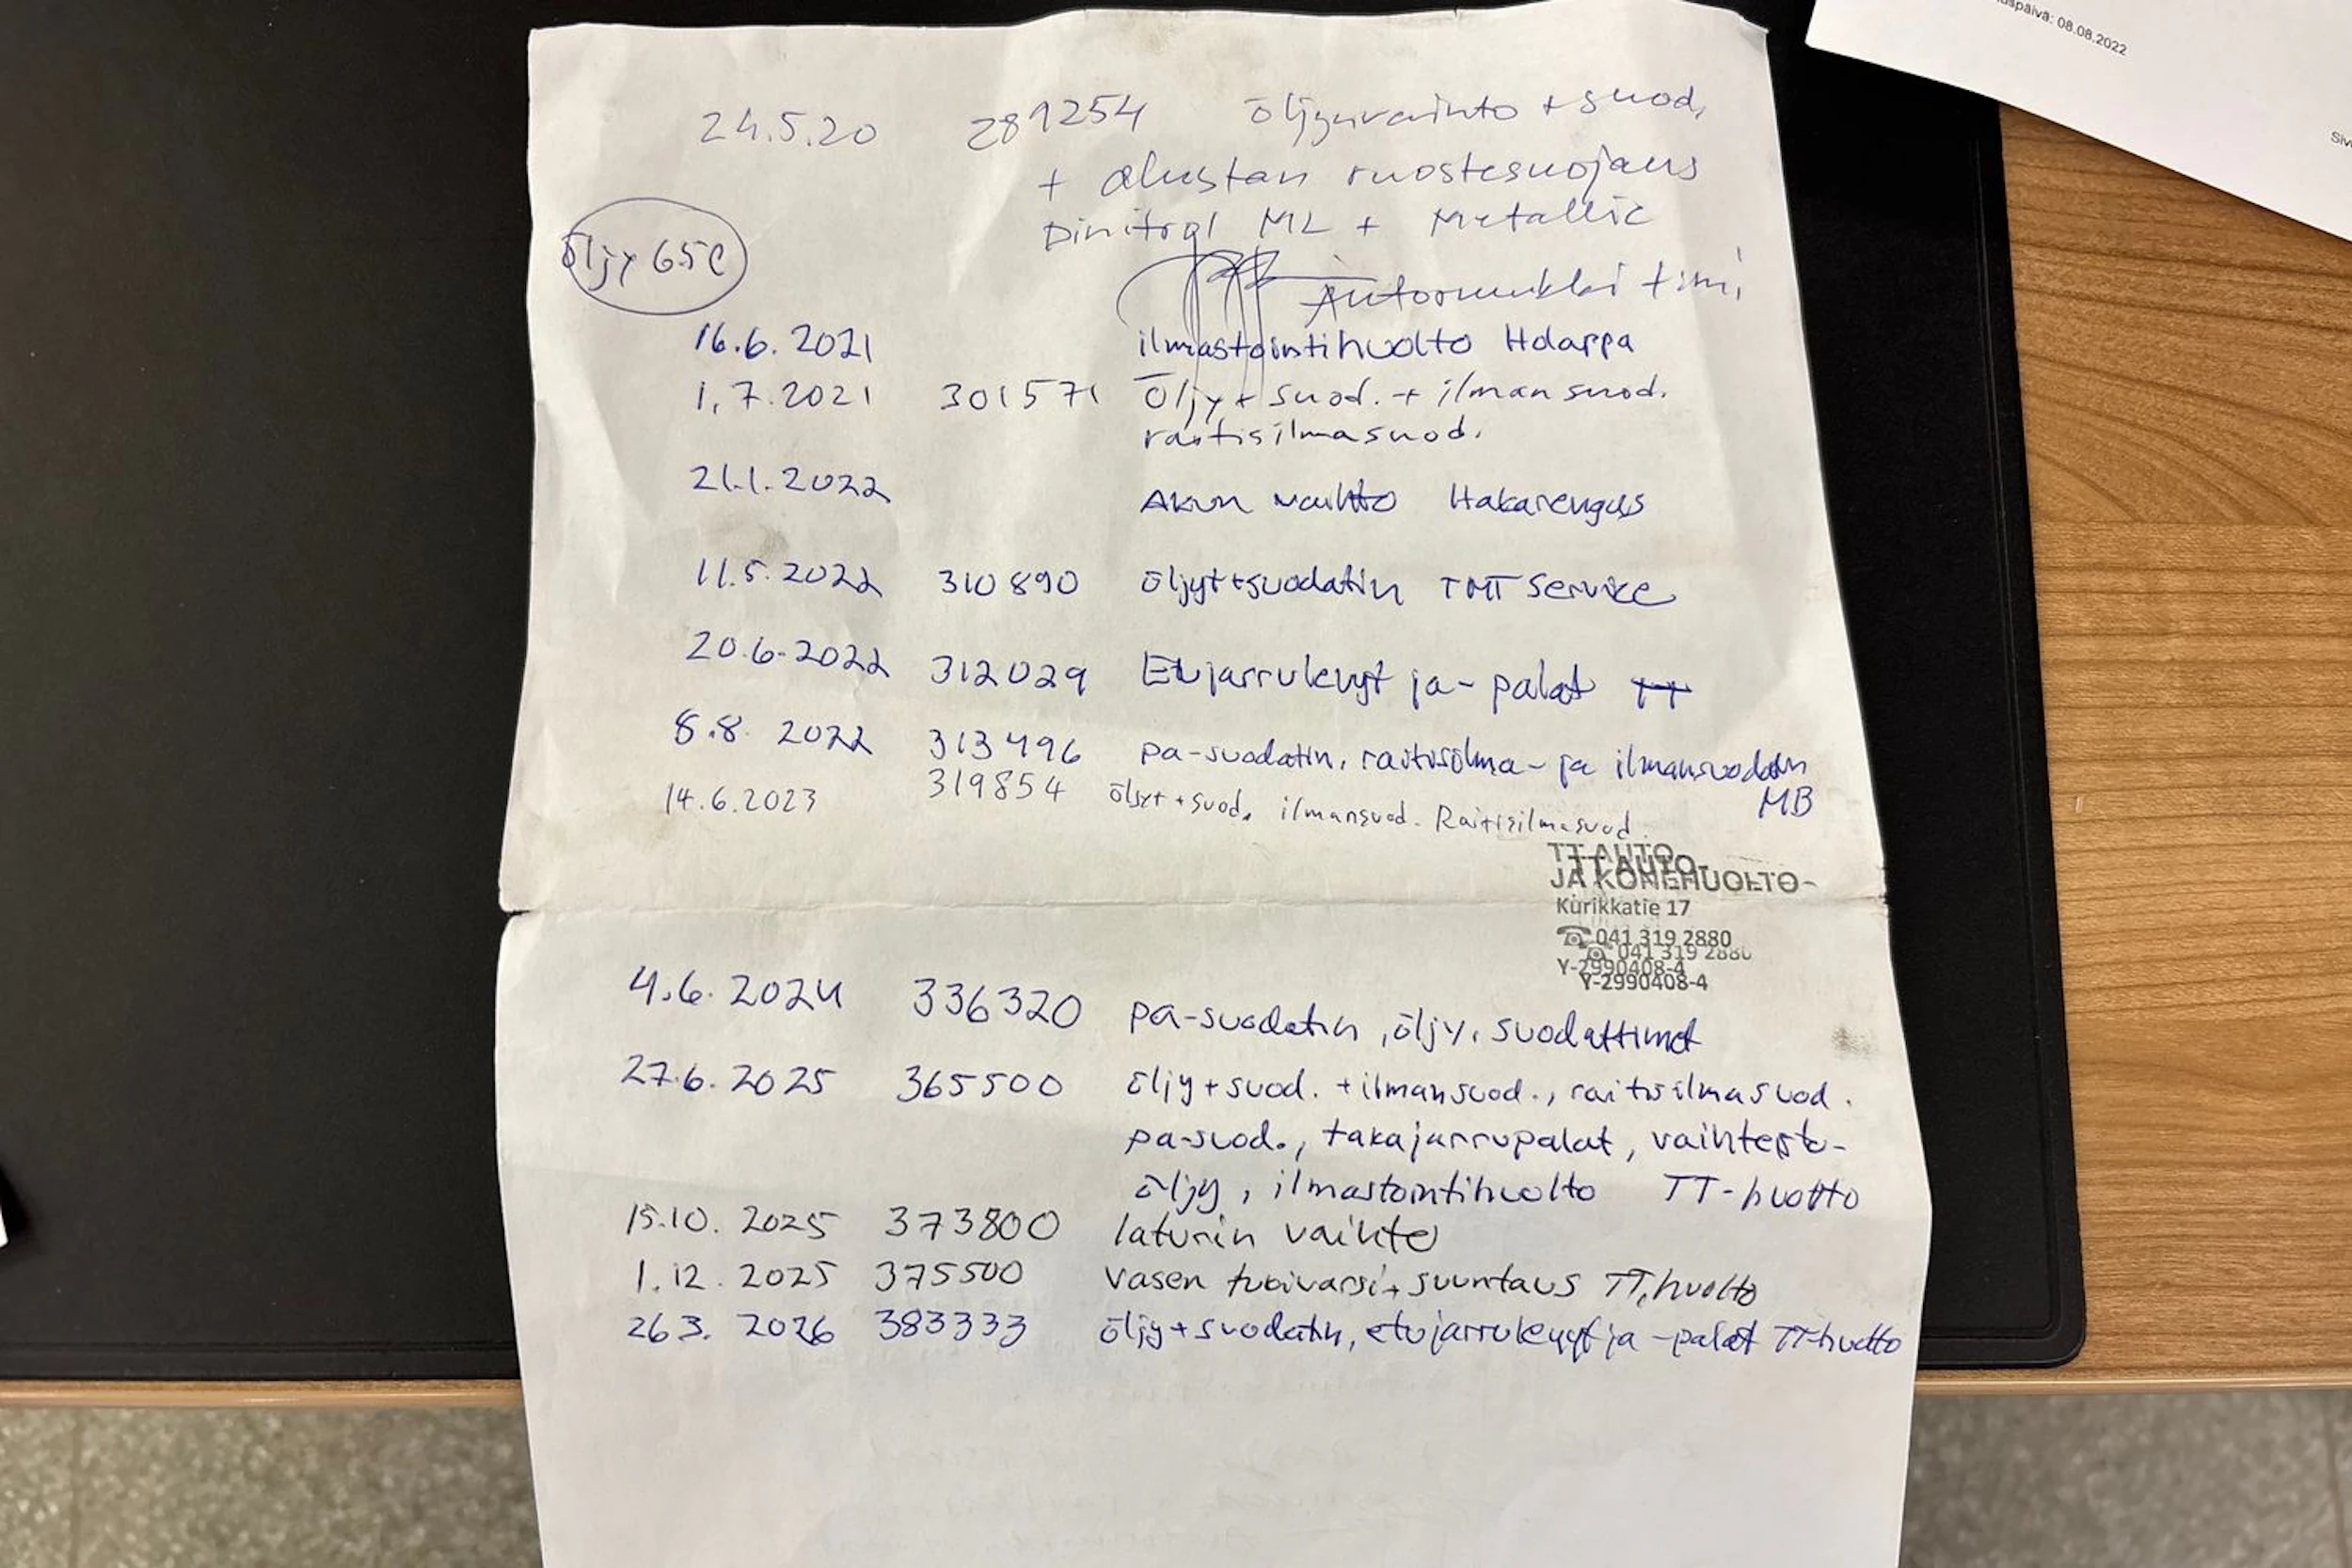 uspäivä: 08.08.2022
24.5.20 289254 öljynvaihto + suod.
+ alustan ruostesuojaus
Dinitrol ML + Metallic
öljy 6.5l
tmi,
16.6.2021 ilmastointihuolto Holappa
1.7.2021 301571 Öljy + suod. + ilmansuod.
raitisilmasuod.
21.1.2022 Akun vaihto Hakarengas
11.5.2022 310890 öljyt+suodatin TMT Service
20.6.2022 312029 Etujarrulevyt ja -palat TT
8.8. 2022 313496 pa-suodatin, raitisilma- ja ilmansuodatin
MB
14.6.2023 319854 öljyt + suod. ilmansuod. Raitisilmasuod.
TT AUTO-
JA KONEHUOLTO
Kurikkatie 17
☎ 041 319 2880
Y-2990408-4
TT AUTO-
☎ 041 319 2880
Y-2990408-4
4.6.2024 336320 pa-suodatin, öljy, suodattimet
27.6.2025 365500 öljy + suod. + ilmansuod., raitisilmasuod.
pa-suod., takajarrupalat, vaihteisto-
öljy, ilmastointihuolto TT-huolto
15.10.2025 373800 laturin vaihto
1.12.2025 375500 vasen tukivarsi + suuntaus TT-huolto
26.3.2026 383333 öljy + suodatin, etujarrulevyt ja -palat TT-huolto